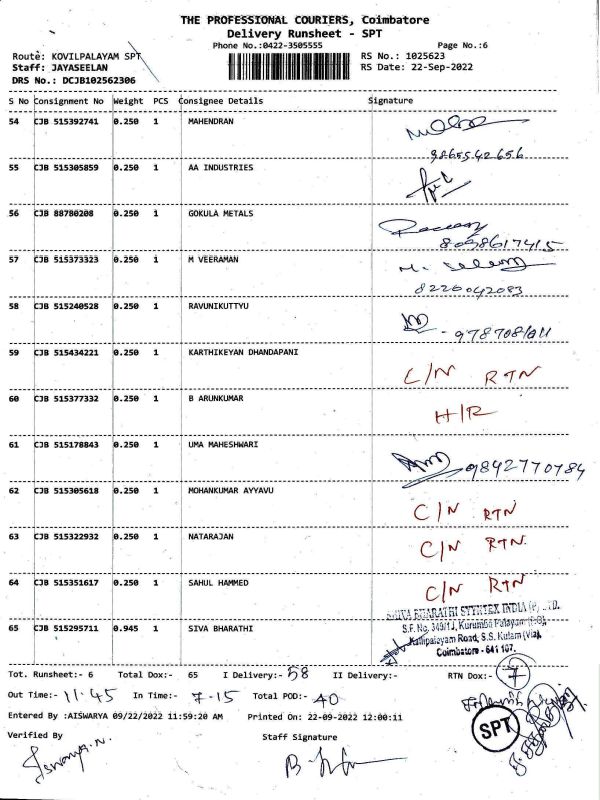 THE PROFESSIONAL COURIERS, Coimbatore
Delivery Runsheet - SPT
Phone No.:0422-3505555 Page No.:6
Route: KOVILPALAYAM SPT RS No.: 1025623
Staff: JAYASEELAN RS Date: 22-Sep-2022
DRS No.: DCJB102562306
S No Consignment No Weight PCS Consignee Details Signature
54 CJB 515392741 0.250 1 MAHENDRAN
9865542656
55 CJB 515305859 0.250 1 AA INDUSTRIES
56 CJB 88780208 0.250 1 GOKULA METALS
8098617415
57 CJB 515373323 0.250 1 M VEERAMAN
8220042083
58 CJB 515240528 0.250 1 RAVUNIKUTTYU
59 CJB 515434221 0.250 1 KARTHIKEYAN DHANDAPANI
C/N RTN
60 CJB 515377332 0.250 1 B ARUNKUMAR
H/R
61 CJB 515178843 0.250 1 UMA MAHESHWARI
9842770784
62 CJB 515305618 0.250 1 MOHANKUMAR AYYAVU
C/N RTN
63 CJB 515322932 0.250 1 NATARAJAN
C/N RTN.
64 CJB 515351617 0.250 1 SAHUL HAMMED
C/N RTN
SHIVA BHARATHI SYNTEX INDIA (P) LTD.
65 CJB 515295711 0.945 1 SIVA BHARATHI
S.F. No. 349/1J, Kurumba Palayam (PO),
Kallipalayam Road, S.S. Kulam (Via),
Coimbatore - 641 107.
Tot. Runsheet:- 6 Total Dox:- 65 I Delivery:- 58 II Delivery:- RTN Dox:- 7
Out Time:- 11.45 In Time:- 7-15 Total POD:- 40
Entered By :AISWARYA 09/22/2022 11:59:20 AM Printed On: 22-09-2022 12:00:11
SPT
Verified By Staff Signature
Aiswarya.N.